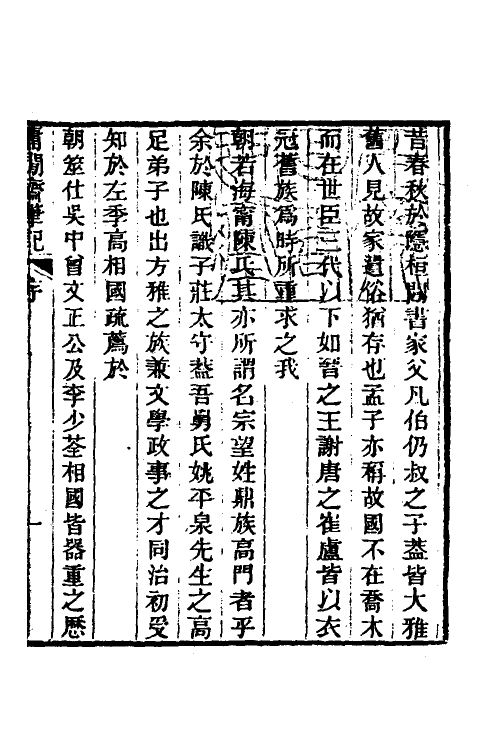 昔春秋於隱桓則書家父凡伯仍叔之子葢皆大雅
舊人見故家遺俗猶存也孟子亦稱故國不在喬木
而在世臣三代以下如晉之王謝唐之崔盧皆以衣
冠舊族爲時所重求之我
朝若海甯陳氏其亦所謂名宗望姓鼎族高門者乎
余於陳氏識子莊太守葢吾舅氏姚平泉先生之高
足弟子也出方雅之族兼文學政事之才同治初受
知於左季高相國疏薦於
朝筮仕吳中曾文正公及李少荃相國皆器重之歷
庸閒齋筆記 序 一